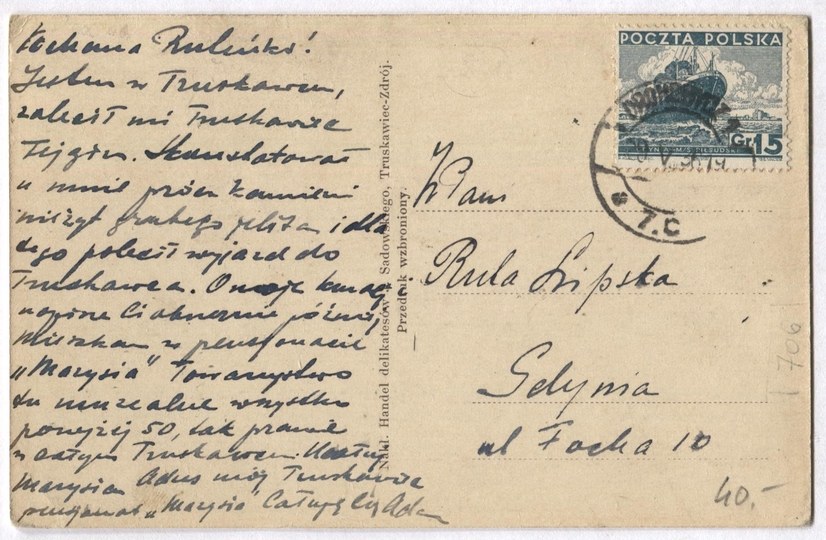 Kochana Ruleńko!
Jestem w Truskawcu,
zalecił mi Truskawiec
Skonstatował
u mnie prócz kamieni
nieżyt grubego jelita i dla
tego polecił wyjazd do
Truskawca. O mojej kuracji
napiszę Ci obszernie później,
Mieszkam w pensjonacie
„Marysia" Towarzystwo
tu niezależnie wszystko
powyżej 50, tak prawie
w całym Truskawcu.
Marysia Adres mój Truskawiec
pensjonat „Marysia" Całuję Cię Adam
Nakł. Handel delikatesów Sadowskiego, Truskawiec-Zdrój.
Przedruk wzbroniony.
POCZTA POLSKA
Gr 15
M/S PIŁSUDSKI
* 7. C
WPani
Rula Lipska
Gdynia
ul Focha 10
706
40.-